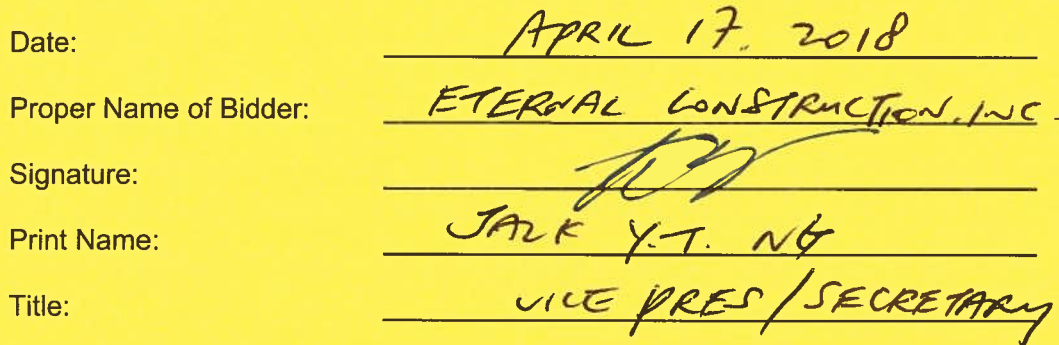 Date: APRIL 17. 2018
Proper Name of Bidder: ETERNAL CONSTRUCTION. INC.
Signature:
Print Name: JACK Y.T. NG
Title: VICE PRES / SECRETARY